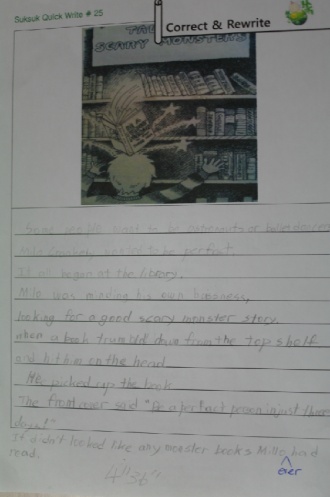 Suksuk Quick Write # 25
Correct & Rewrite
THE
SCARY MONSTERS
Some people want to be astronauts or
Milo wanted to be perfect
It all began at the library.
Milo was minding his own
looking for a good scary monster story.
when a book down from the top shelf
and hit him on the head
He picked up the book
The front cover said "Be a perfect person in just three
days!"
It didn't looked like any monster books Millo had
ever
read.
4' 36"